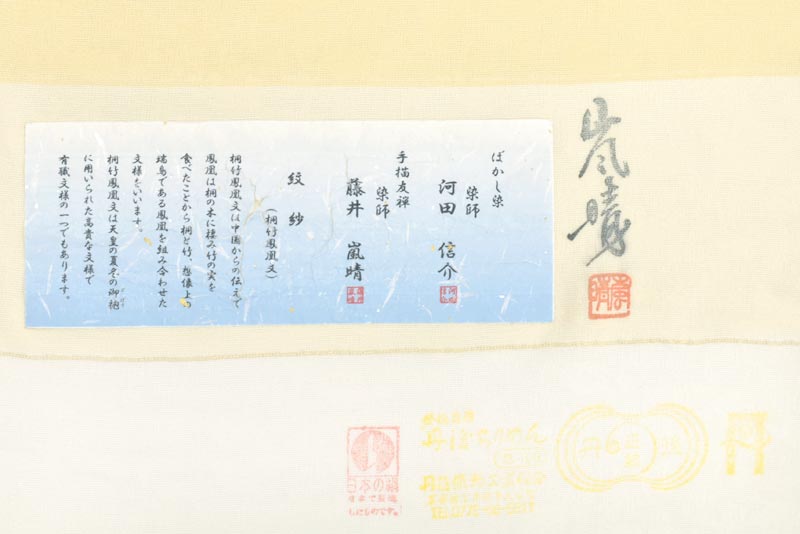 嵐晴
ぼかし染
染師
河田 信介
手描友禅
染師
藤井 嵐晴
紋紗
(桐竹鳳凰文)
桐竹鳳凰文は中国からの伝えで
鳳凰は桐の木に棲み竹の実を
食べたことから桐と竹、想像上の
瑞鳥である鳳凰を組み合わせた
文様をいいます。
桐竹鳳凰文は天皇の夏冬の御袍
に用いられた高貴な文様で
有職文様の一つでもあります。
日本の絹
日本で製造
したものです。
丹後ちりめん